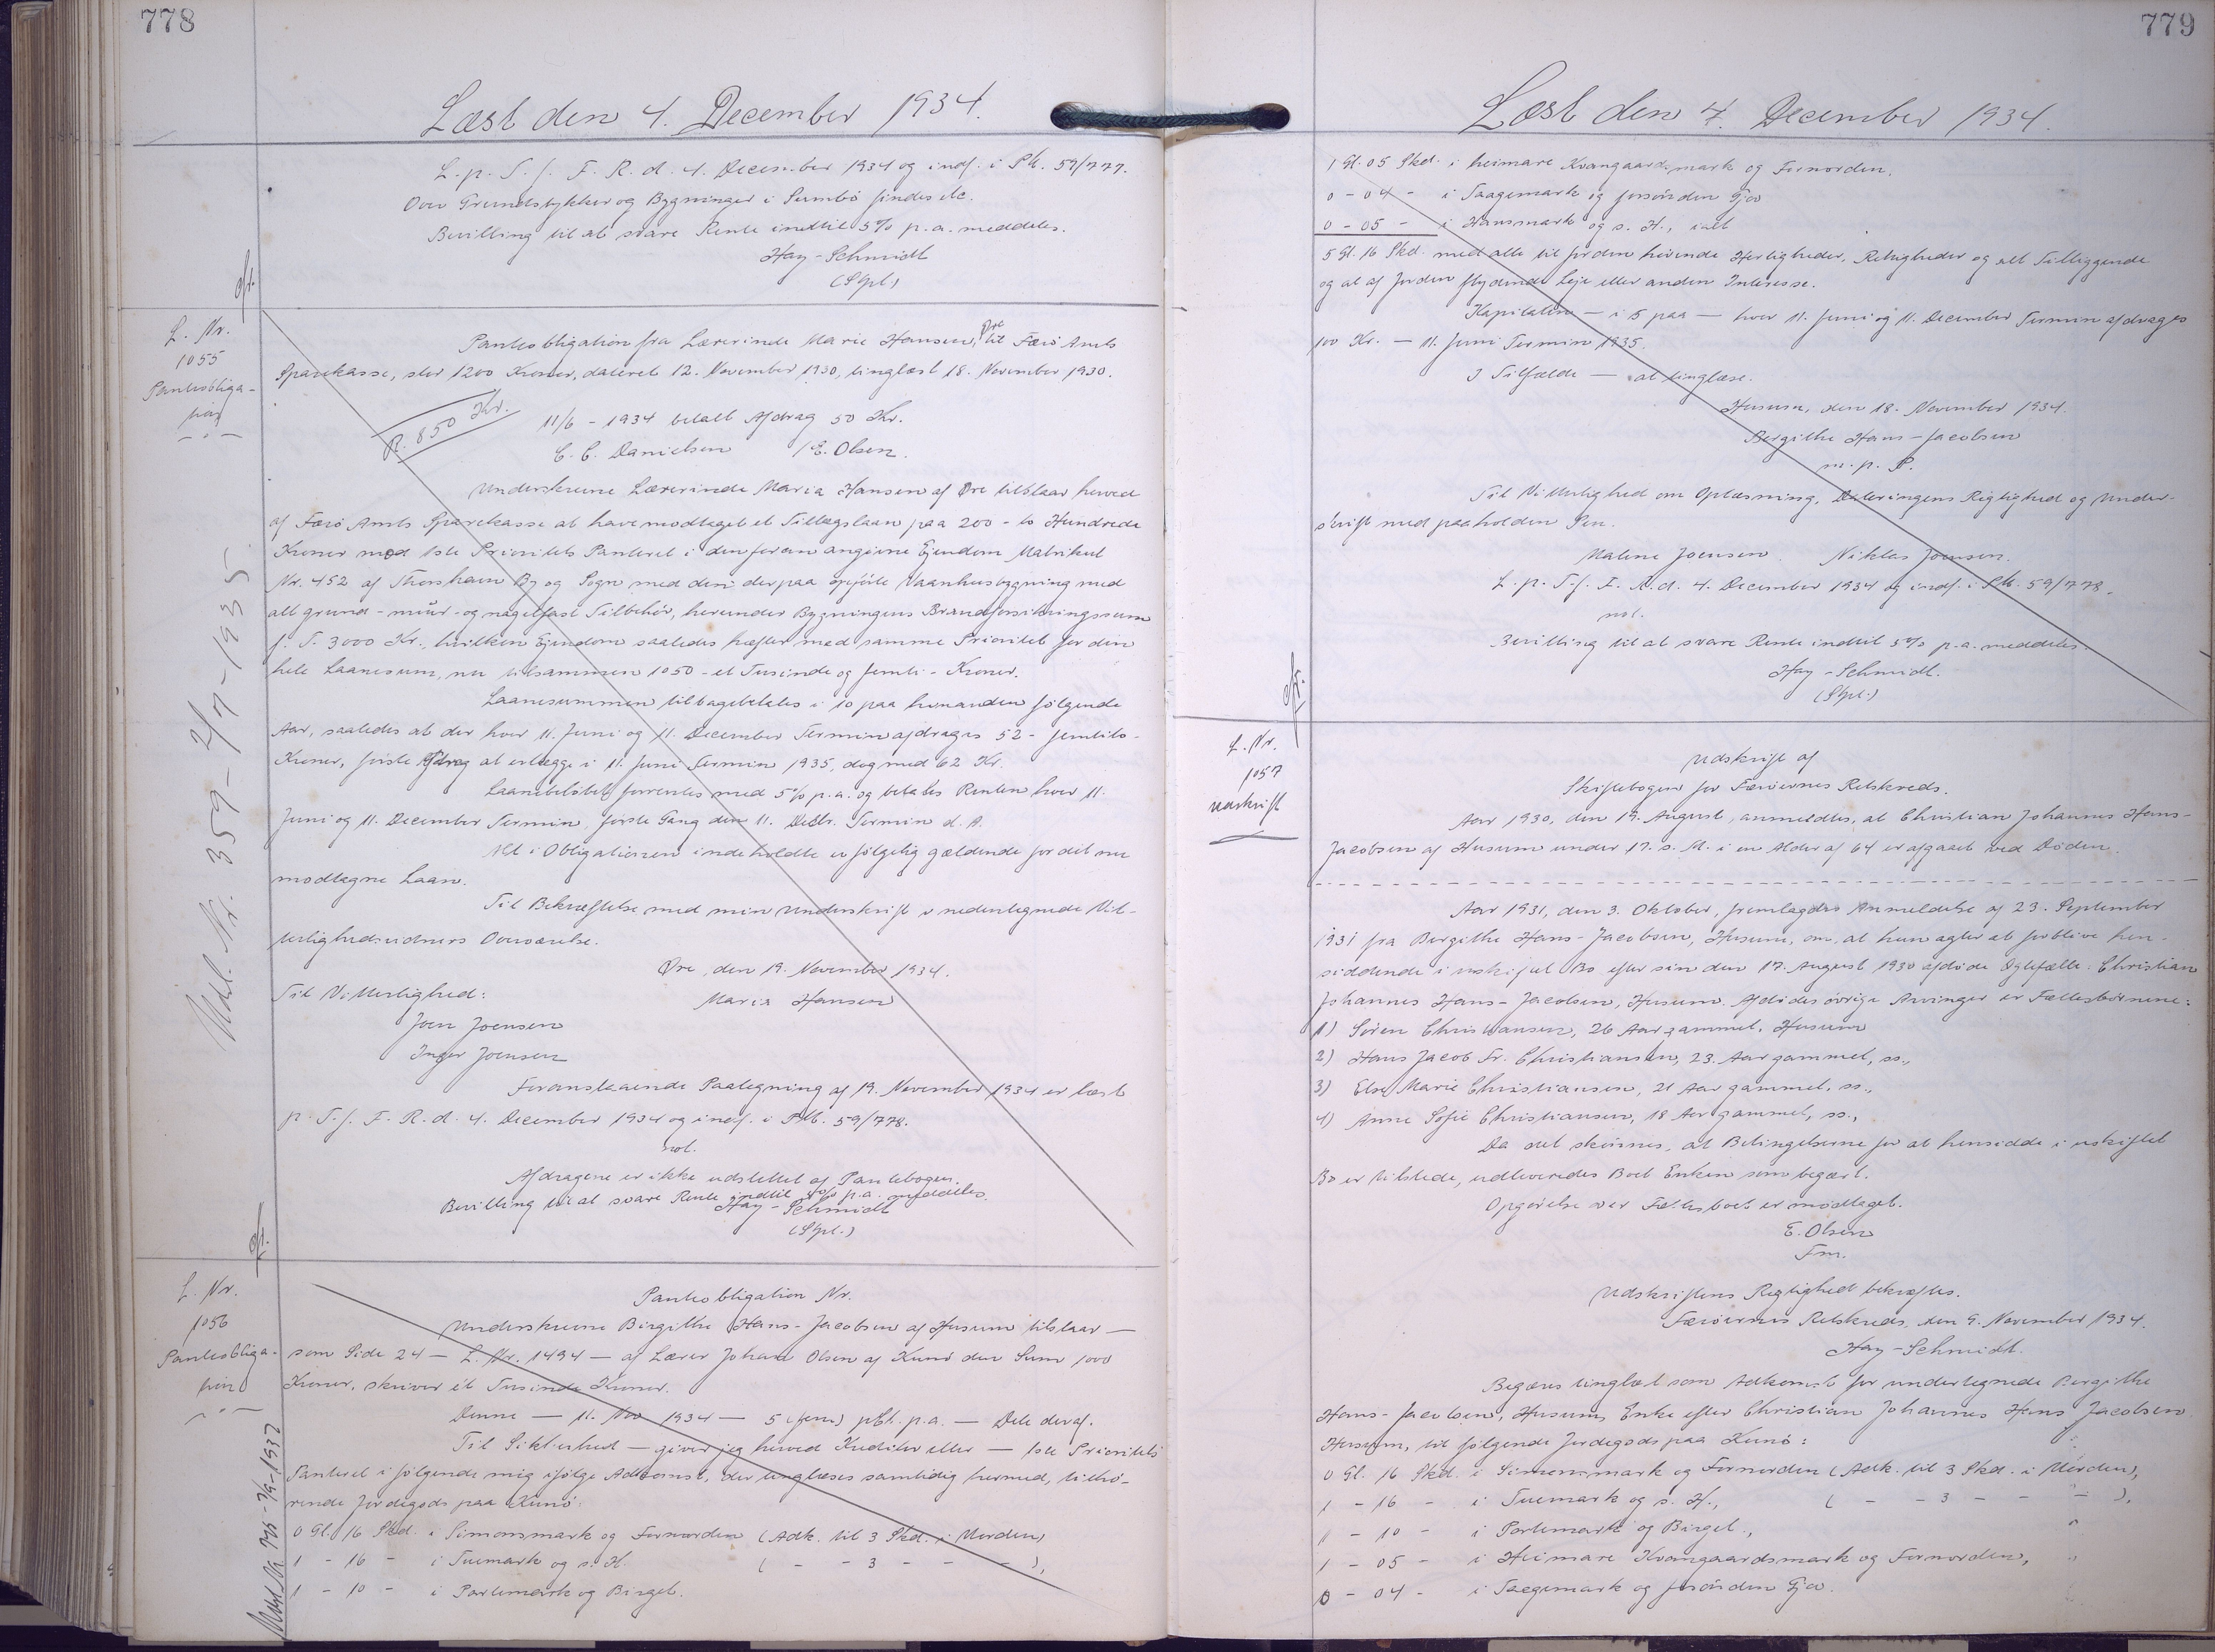 778
Læst den 4. December 1934.
L. p. T. f. F. R. d. 4. December 1934 og indf. i Pb. 59/777.
Over Grundstykker og Bygninger i Sumbö findes etc.
Bevilling til at svare Rente indtil 5% p.a. meddeles.
Hay-Schmidt
(Spl.)
cfr.
L. Nr.
1055
Panteobliga-
tion
Panteobligation fra Lærerinde Marie Hansen, Øre til Færö Amts
Sparekasse, stor 1200 Kroner, dateret 12. November 1930, tinglæst 18. November 1930.
R. 850 Kr.
11/6 - 1934 betalt Afdrag 50 Kr.
C. C. Danielsen /E. Olsen.
Underskrevne Lærerinde Maria Hansen af Øre tilstaar herved
af Færö Amts Sparekasse at have modtaget et Tillægslaan paa 200 - to Hundrede
Kroner mod 1ste Prioritets Panteret i den foran angivne Ejendom Matrikul
Nr. 452 af Thorshavn By og Sogn med den derpaa opförte Vaanhusbygning med
alt grund- muur- og nagelfast Tilbehör, herunder Bygningens Brandforsikringssum
f. T. 3000 Kr., hvilken Ejendom saaledes hæfter med samme Prioritet for den
hele Laanesum, nu tilsammen 1050 - et Tusinde og femti - Kroner.
Laanesummen tilbagebetales i 10 paa hinanden fölgende
Aar, saaledes at der hver 11. Juni og 11. December Termin afdrages 52 - femtito -
Kroner, förste Afdrag at erlægge i 11. Juni Termin 1935, dog med 62 Kr.
Laanebelöbet forrentes med 5% p.a. og betales Renten hver 11.
Juni og 11. December Termin, förste Gang den 11. Decbr. Termin d. A.
Alt i Obligationen indeholdte er fölgelig gældende for det nu
modtagne Laan.
Til Bekræftelse med min Underskrift i undertegnede Vit-
terlighedsvidners Overværelse.
Øre, den 19. November 1934.
Til Vitterlighed: Maria Hansen
Joen Joensen
Inger Joensen
Foranstaaende Paategning af 19. November 1934 er læst
p. T. f. F. R. d. 4. December 1934 og indf. i Pb. 59/778.
not.
Afdragene er ikke udslettet af Pantebogen.
Bevilling til at svare Rente indtil 5% p.a. meddeles.
Hay-Schmidt
(Spl.)
Udsl. Nr. 359 - 2/7 - 1935
cfr.
L. Nr.
1056
Panteobliga-
tion
Panteobligation Nr.
Underskrevne Birgithe Hans-Jacobsen af Husum tilstaar —
som Side 24 — L. Nr. 1494 — af Lærer Johan Olsen af Kunö den Sum 1000
Kroner, skriver et Tusinde Kroner.
Denne — 11. Nov 1934 — 5 (fem) pCt. p.a. — Dele deraf.
Til Sikkerhed — giver jeg herved Kreditor eller — 1ste Prioritets
Panteret i fölgende mig ifölge Adkomst, der tinglæses samtidig hermed, tilhö-
rende Jordegods paa Kunö:
0 Gl. 16 Skd. i Simonsmark og Fornorden (Adk. til 3 Skd. i Uerden)
1 - 16 - i Tuemark og s. H. ( - - 3 - - - ),
1 - 10 - i Partemark og Birgel.
779
Læst den 4. December 1934.
1 Gl. 05 Skd. i heimare Kvangaardsmark og Fornorden,
0 - 04 - i Taagemark og forsönden Gjov
0 - 05 - i Hansmark og s. H., ialt
5 Gl. 16 Skd. med alle til Jorden hörende Herligheder, Rettigheder og alt Tilliggende
og al af Jorden flydende Leje eller anden Interesse.
Kapitalen — i 5 paa — hver 11. Juni og 11. December Termin afdrages
100 Kr. — 11. Juni Termin 1935.
I Tilfælde — at tinglæse.
Husum, den 18. November 1934.
Bergithe Hans-Jacobsen
m. p. P.
Til Vitterlighed om Oplæsning, Dateringens Rigtighed og Under-
skrift med paaholden Pen.
Malene Joensen. Niklas Joensen.
L. p. T. f. F. R. d. 4. December 1934 og indf. i Pb. 59/778.
not.
Bevilling til at svare Rente indtil 5% p.a. meddeles.
Hay-Schmidt.
(Spl.)
cfr.
L. Nr.
1057
Udskrift
Udskrift af
Skiftebogen for Færöernes Retskreds.
Aar 1930, den 19. August, anmeldtes, at Christian Johannes Hans-
Jacobsen af Husum under 17. s. M. i en Alder af 64 er afgaaet ved Döden.
Aar 1931, den 3. Oktober, fremlagdes Anmeldelse af 23. September
1931 fra Bergithe Hans-Jacobsen, Husum, om, at hun agter at forblive hen-
siddende i uskiftet Bo efter sin den 17. August 1930 afdöde Ægtefælle: Christian
Johannes Hans-Jacobsen, Husum. Afdödes övrige Arvinger er Fællesbörnene:
1) Sören Christiansen, 26 Aar gammel, Husum
2) Hans Jacob Fr. Christiansen, 23 Aar gammel, ss.,
3) Else Marie Christiansen, 21 Aar gammel, ss.,
4) Anne Sofie Christiansen, 18 Aar gammel, ss.,
Da det skönnes, at Betingelserne for at hensidde i uskiftet
Bo er tilstede, udleveredes Boet Enken som begært.
Opgörelse over Fællesboet er modtaget.
E. Olsen
Fm.
Udskriftens Rigtighed bekræftes.
Færöernes Retskreds, den 9. November 1934.
Hay-Schmidt.
Begæres tinglæst som Adkomst for undertegnede Bergithe
Hans-Jacobsen, Husum, Enke efter Christian Johannes Hans Jacobsen
Husum, til fölgende Jordegods paa Kunö:
0 Gl. 16 Skd. i Simonsmark og Fornorden (Adk. til 3 Skd. i Uerden),
1 - 16 - i Tuemark og s. H., ( - - 3 - - - ),
1 - 10 - i Partemark og Birgel.,
1 - 05 - i Heimare Kvangaardsmark og Fornorden,
0 - 04 - i Taagemark og forsönden Gjov.